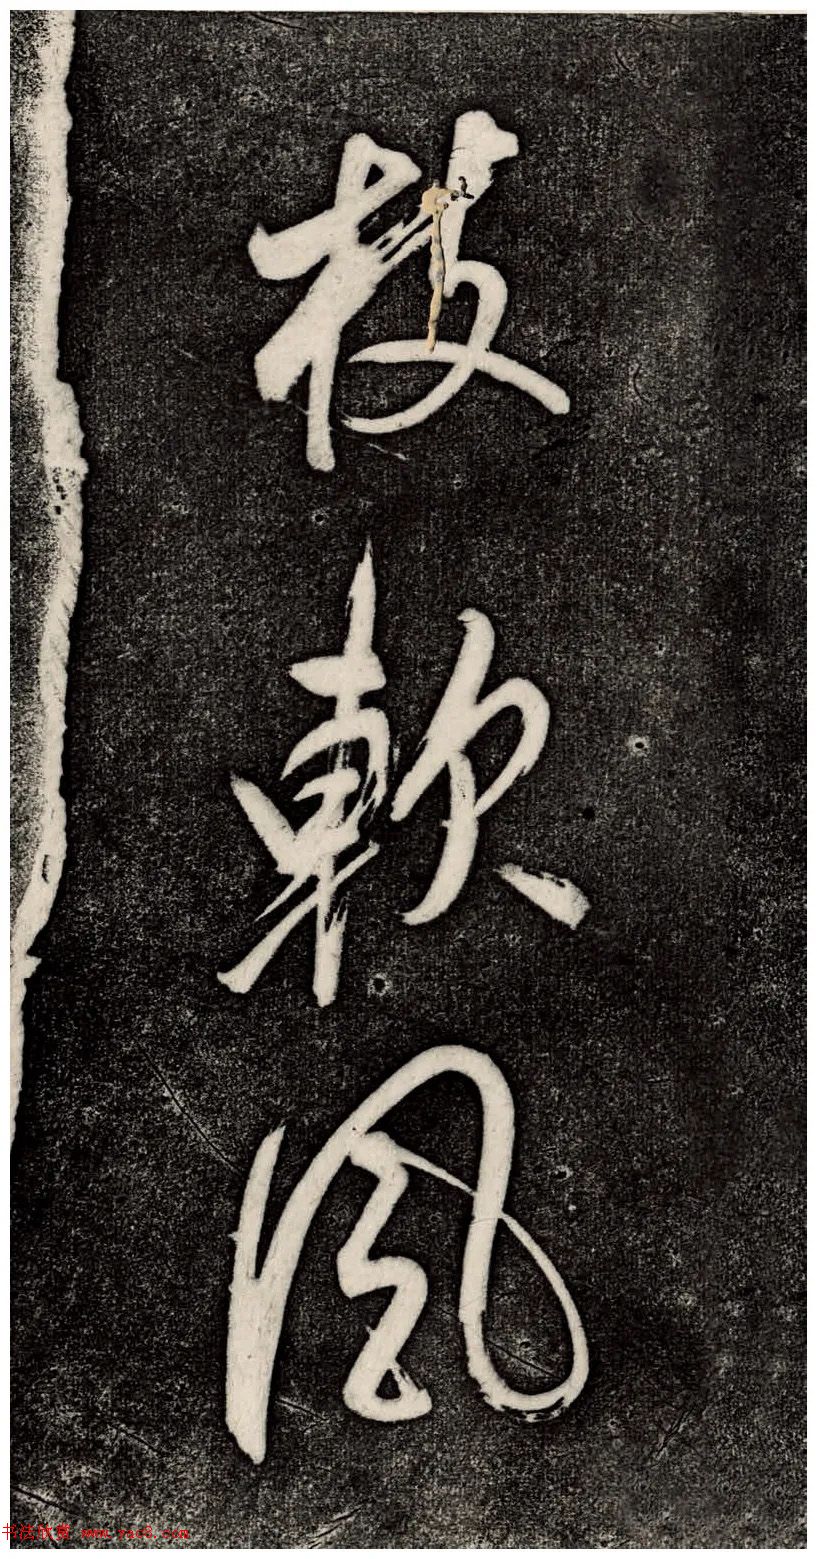 枝軟風
书法欣赏 www.yac8.com